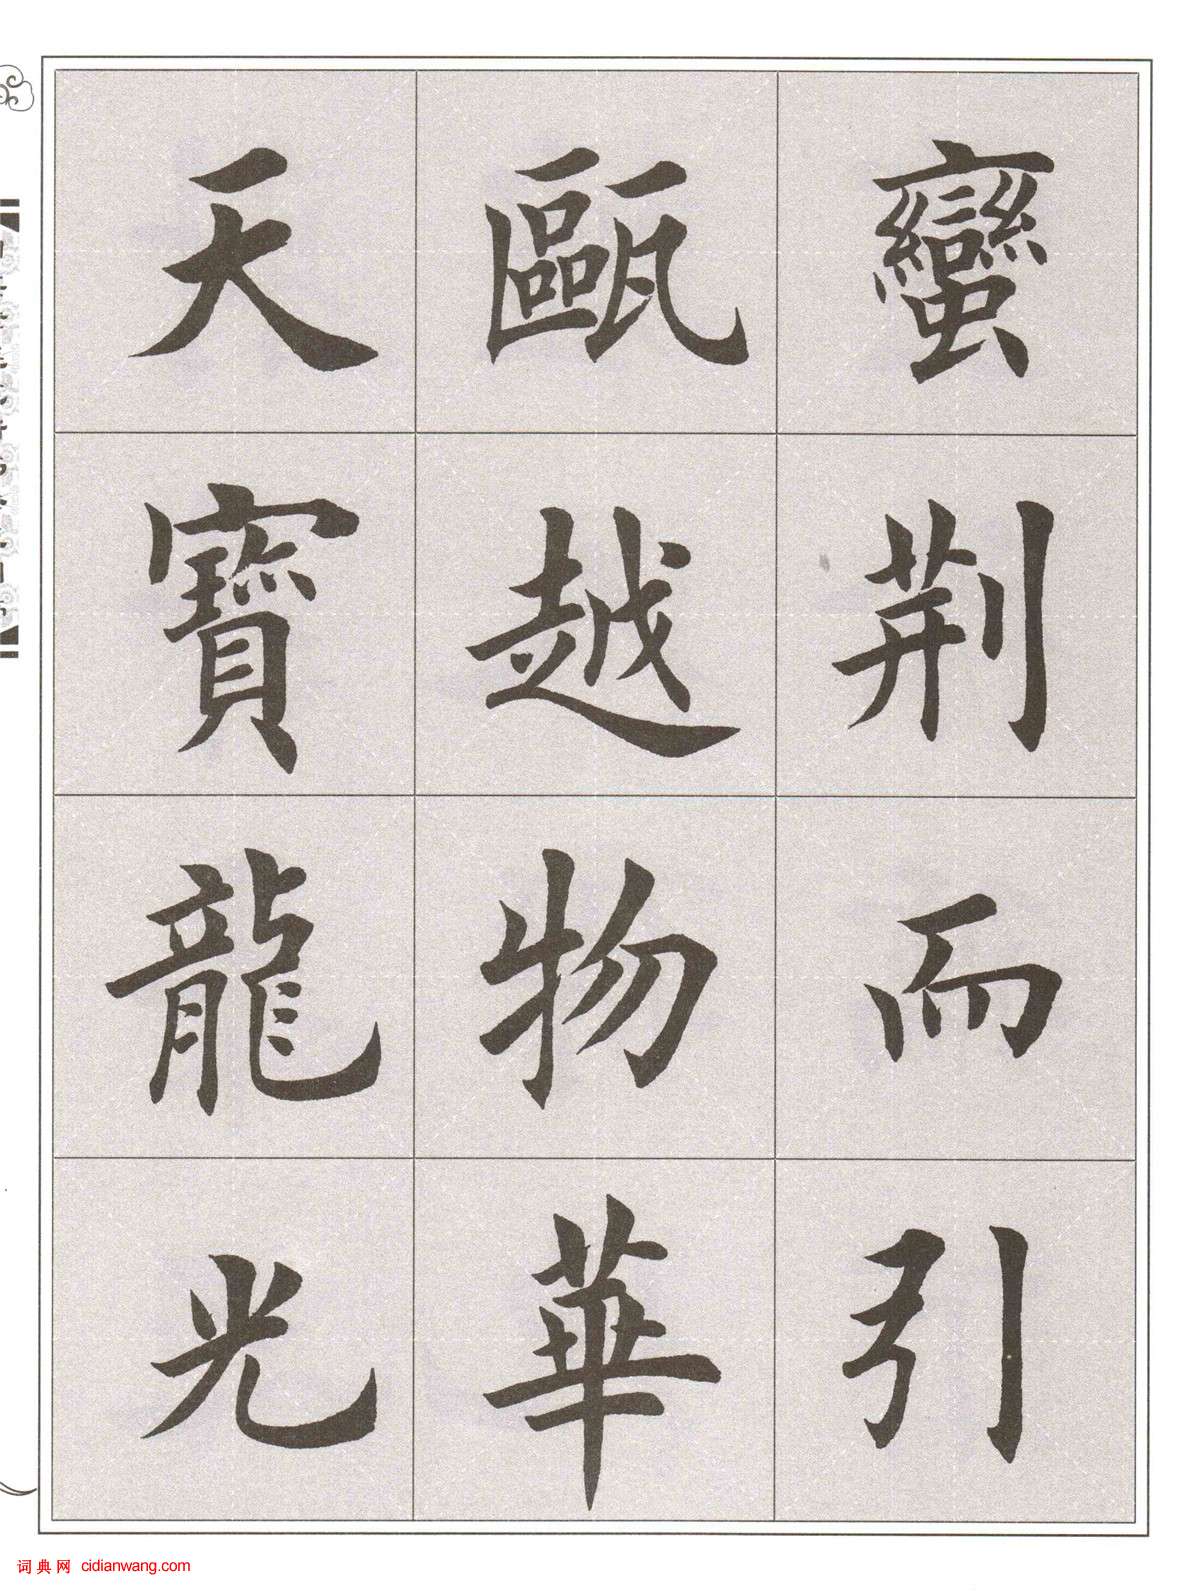 蠻荆而引
甌越物華
天寶龍光
词典网 cidianwang.com